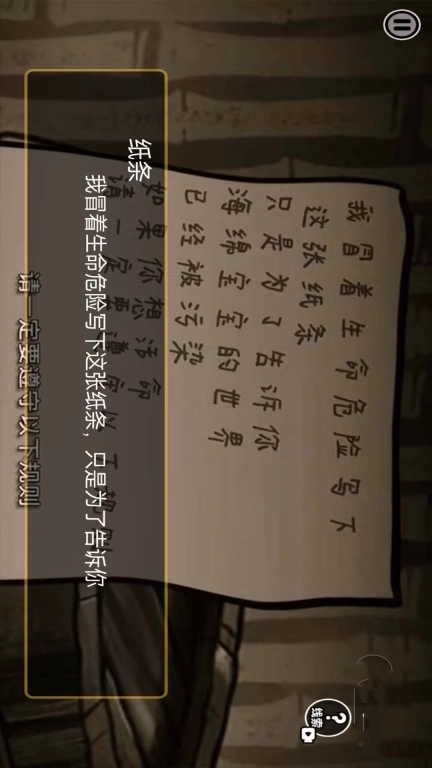 线索
我冒着生命危险写下
这张纸条
只是为了告诉你
海绵宝宝的世界
已经被污染
如果你想活命
请一定要遵守以下规则
纸条
我冒着生命危险写下这张纸条，只是为了告诉你
请一定要遵守以下规则